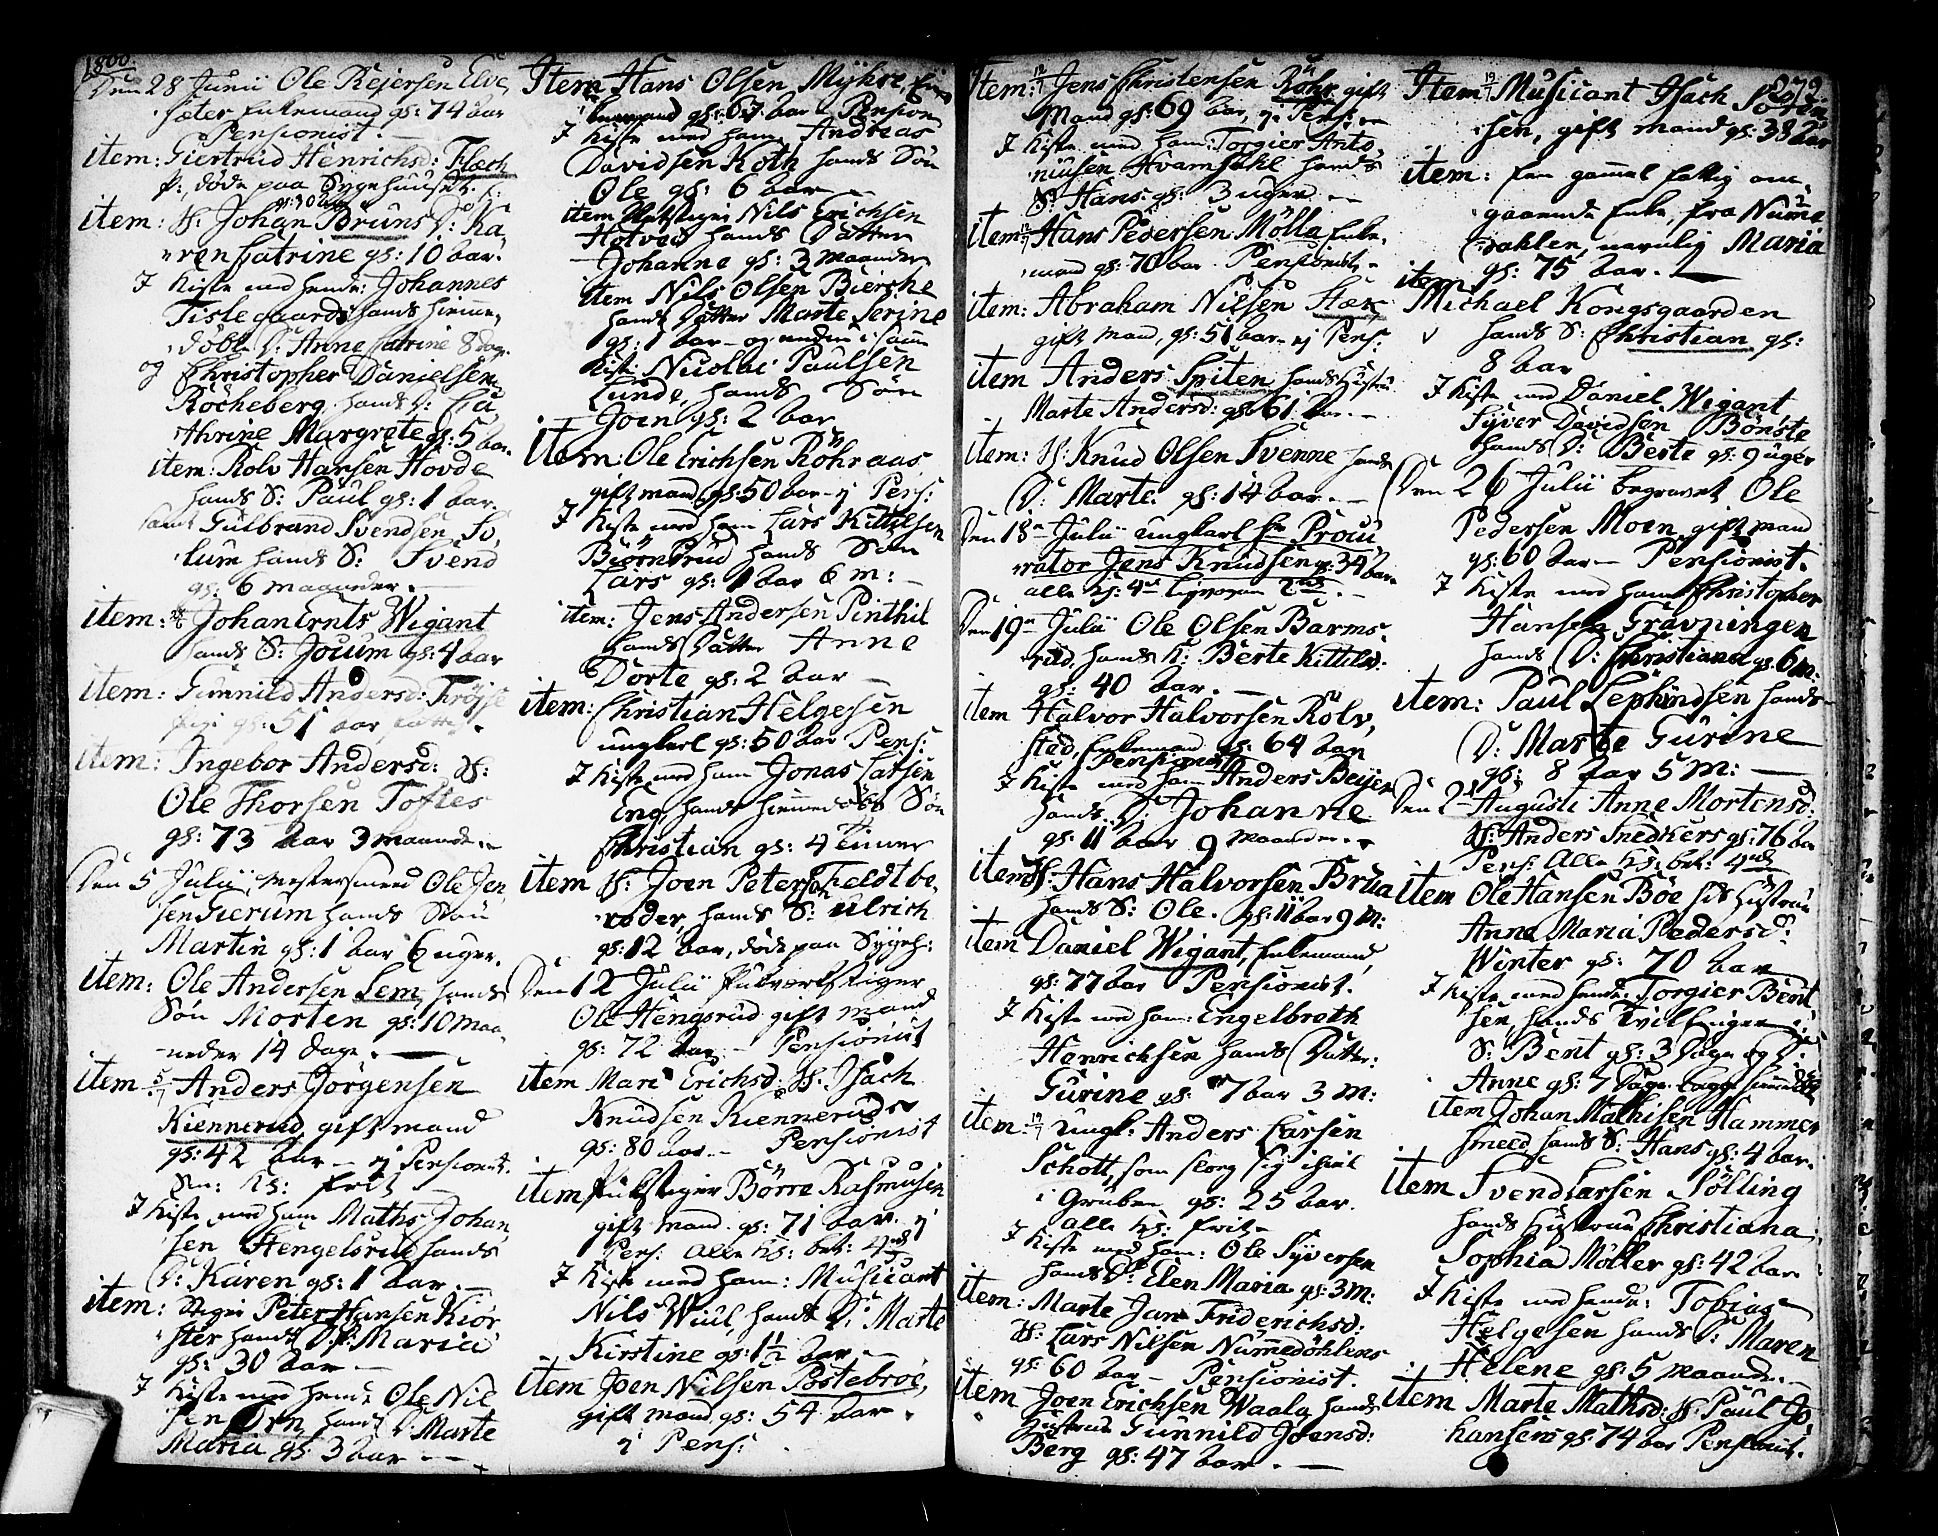 1800.
Den 28 Junii Ole Rejersen Elve,
sæter Enkemand gs: 74 aar
Pensionist.
item: Giertrud Henrichsd: Flach
P: døde paa Sygehuuset
gs: 30 aar
item: H: Johan Bruns D: Ka
ren Catrine gs: 10 aar.
I Kiste med hende: Johannes
Tislegaards hands hiemme,
døbte D: Anne Catrine 8 dag.
og Christopher Danielsen
Rocheberg hands D: Ca,
thrine Margrete gs: 5 aar.
item: Rolv Hansen Hovde
hands S: Paul gs: 1 aar.
samt Gulbrand Svendsen
lum hands S: Svend
gs: 6 maaneder.
item: Johan Ernts Wigant
hands S: Jouum gs: 4 aar
item: Gunnild Andersd: Frøyse
gs: 51 aar
item: Ingebor Andersd: H:
Ole Thorsen Toftes
gs: 73 aar 3 maaneder
Den 5 Julii, Mestersmeed Ole Jen,
sen Gierum hands Søn
Martin gs: 1 aar 6 uger.
item: Ole Andersen Lem hands
Søn Morten gs: 10 maa
neder 14 dage.
item 5/7 Anders Jørgensen
Kiennerud gift mand
gs: 42 aar ej Pensionist.
Kl: frit
I Kiste med ham Maths Johan
sen Hengelsrud hands
D: Karen gs: 1 aar.
item: Peter Hansen Kior
ster hands Maria
gs: 30 aar
I Kiste med hende Ole Nil
sen Ørn hands D: Marte
Maria gs: 3 aar
Item Hans Olsen Myhre, En
kemand gs: 67 aar Pension
I Kiste med ham Andreas
Davidsen Koth hands Søn
Ole gs: 6 aar
item Nils Erichsen
Hotved hands Datter
Johanne gs: 3 maaneder
item Nils Olsen Bierche
hands Datter Marte Serine
gs: 1 aar og endnu i samme
Kiste Nicolai Paulsen
Lunde, hands Søn
Joen gs: 2 aar
Item: Ole Erichsen Röhraas
gift mand gs: 50 aar ej Pens:
I Kiste med ham Lars Kittilsen
Biørnerud hands Søn
Lars gs: 1 aar 6 m:
item: Jens Andersen Pinthil
hands Datter Anne
Dorte gs: 2 aar
item: Christian Helgesen
ungkarl gs: 50 aar Pens:
I Kiste med ham Jonas Larsen
Eng, hands hiemmedøbte Søn
Christian gs: 4 Timer
item H: Joen Petersen Feldtbe,
reder, hands S: Ulrich
gs: 12 aar, døde paa Sygeh:
Den 12 Julii Pukværkstiger
Ole Hengsrud gift mand
gs: 72 aar Pensionist
item Mari Erichsd: H: Isach
Knudsen Kienneruds
gs: 80 aar Pensionist
item Pukstiger Børre Rasmusen
gift mand gs: 71 aar ej
Pens: alle Kl: bet: 4
I Kiste med ham: Musicant
Nils Wiul, hands D: Marte
Kirstine gs: 1 1/2 aar
item Joen Nilsen Postebroe,
gift mand gs: 54 aar
ej Pens:
Item: Jens Christensen Röhr gift
Mand gs: 69 aar, ej Pens:
I Kiste med ham: Torgier Anto,
niusen Hvamsahl hands
S: Hans gs: 3 uger
item Hans Pedersen Mölla Enke,
mand gs: 70 aar Pensionist
item: Abraham Nilsen Stær
gift mand, gs: 51 aar ej Pens:
item Anders Spiten hands Hustru
Marte Andersd: gs: 61 aar
item: H: Knud Olsen Svenne hands
D: Marte gs: 14 aar.
Den 18 Julii ungkarl Hr Procu
rator Jens Knudsen gs: 34 aar
Den 19 Julii Ole Olsen Barms,
rud, hands H: Berte Kittilsd:
gs: 40 aar.
item Halvor Halvorsen Rolv,
stad, Enkemand gs: 64 aar
Pensionist
I Kiste med ham Anders Beyer
hands D: Johanne
gs: 11 aar 9 maaneder
item H: Hans Halvorsen Brua
hands S: Ole. gs: 11 aar 9 m:
item Daniel Wigant, Enkemand,
gs: 77 aar Pensionist.
I Kiste med ham: Engelbrath
Henrichsen hands Datter:
Gurine gs: 7 aar 3 m:
item: 19/7 Ungk: Anders Larsen
Schott, som slog sig ihiel
i Gruben gs: 25 aar.
alle Kl: frit
I Kiste med ham: Ole Syversen
hands D: Elen Maria gs: 3 m:
item: Marte Jane Friderichsd:
H: Lars Nilsen Nummedöhlens
gs: 60 aar Pensionist.
item Joen Erichsen Waala hands
Hustrue Gunnild Joensd:
Berg gs: 47 aar.
279.
Item 19/7 Musicant Isach Sören
sen, gift mand gs: 38 aar
item: En gammel fattig om,
gaaende Enke, fra Numme
dahlen, navnlig Maria
gs: 75 aar.
item
Michael Kongsgaarden
hands S: Christian gs:
8 aar
I Kiste med Daniel Wigant
Syver Davidsen Bonste
hands D: Berte gs: 9 uger
Den 26 Julii begravet Ole
Pedersen Moen gift mand
gs: 60 aar Pensionist.
I Kiste med ham Christopher
Hansen Gravningen
hands D: Christiana gs: 6 m:
item: Paul Sephindsen hands
D: Marte Gurine
gs: 8 aar 5 m:
Den 2 Augusti Anne Mortensd:
H: Anders Snedkers gs: 76 aar
Pens: alle Kl: bet: 4
item Ole Hansen Böe sit Hustrue
Anna Maria Pedersd:
Winter gs: 70 aar
I Kiste med hende: Torgier Bent
sen, hands Tvillinger
S: Bent gs: 3 Dage og D:
Anne gs: 7 Dage
item Johan Mathisen Hammer
smeed hands S: Hans gs: 4 aar.
item Svend Larsen Sölling
hands Hustrue Christiana
Sophia Möller gs: 42 aar
I Kiste med hende: Tobias
Helgesen hands D: Maren
Helene gs: 5 maaneder
item Marte Mathsd: H: Paul Jo,
hansens gs: 74 aar Pensionist.